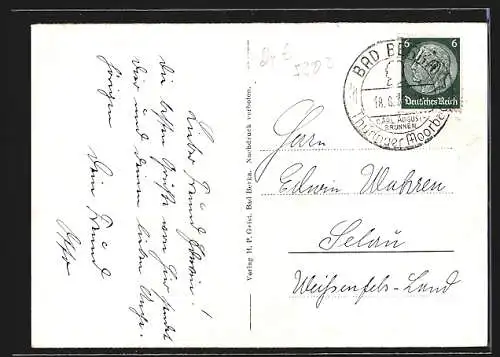 Lieber Freund Edwin!
die besten Grüße von hier sendet
Dir und Deinen lieben
Dein Freund
Otto
Verlag H. P. Geist, Bad Berka. Nachdruck verboten.
BAD BE
18.6.
CARL AUGUST
BRUNNEN
Thüringer Moorbad
6 6
Deutsches Reich
Herrn
Edwin Wahren
Selau
Weißenfels-Land